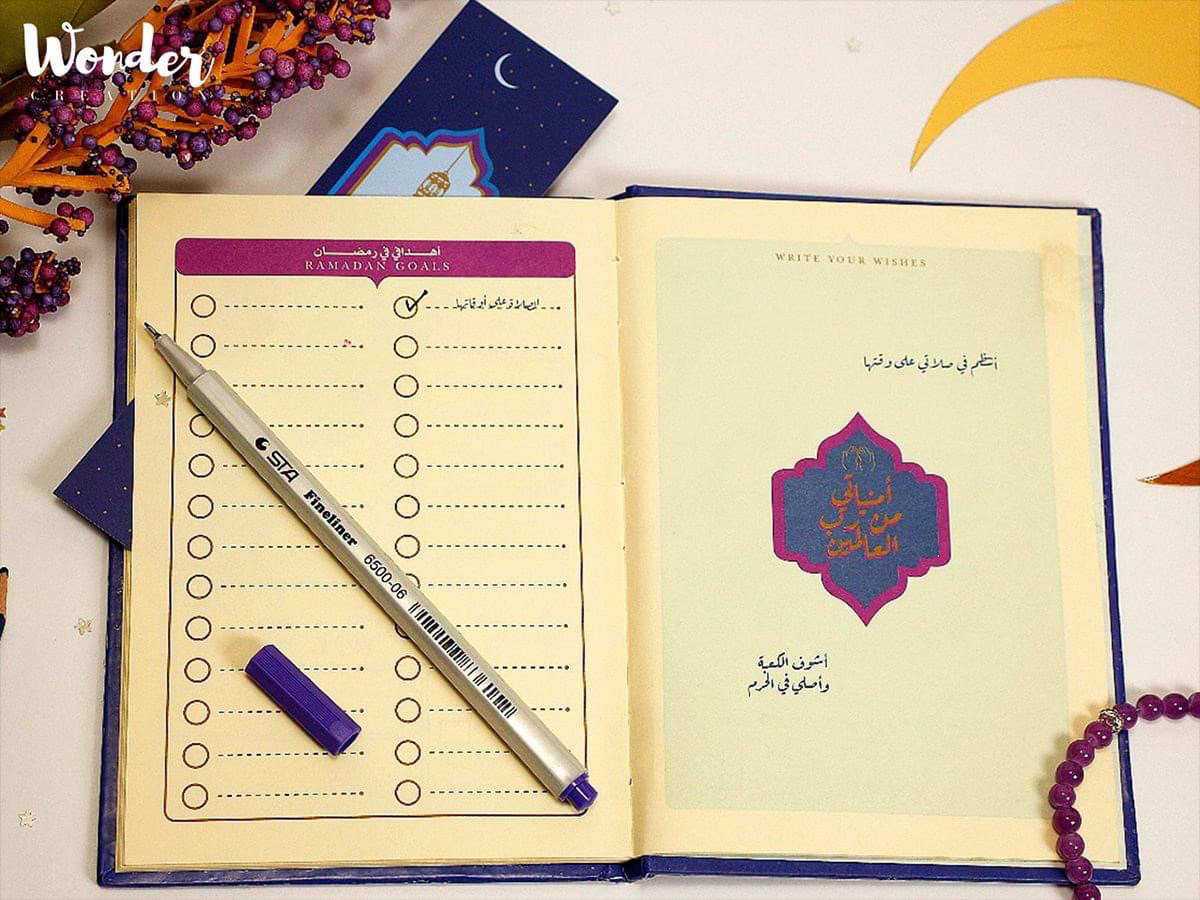 Wonder
CREATION
أهدافي في رمضان
RAMADAN GOALS
الصلاة على أوقاتها
STA Fineliner 6500-06
WRITE YOUR WISHES
أنتظم في صلاتي على وقتها
أمنياتي
من ربي
العالمين
أشوف الكعبة
وأصلي في الحرم